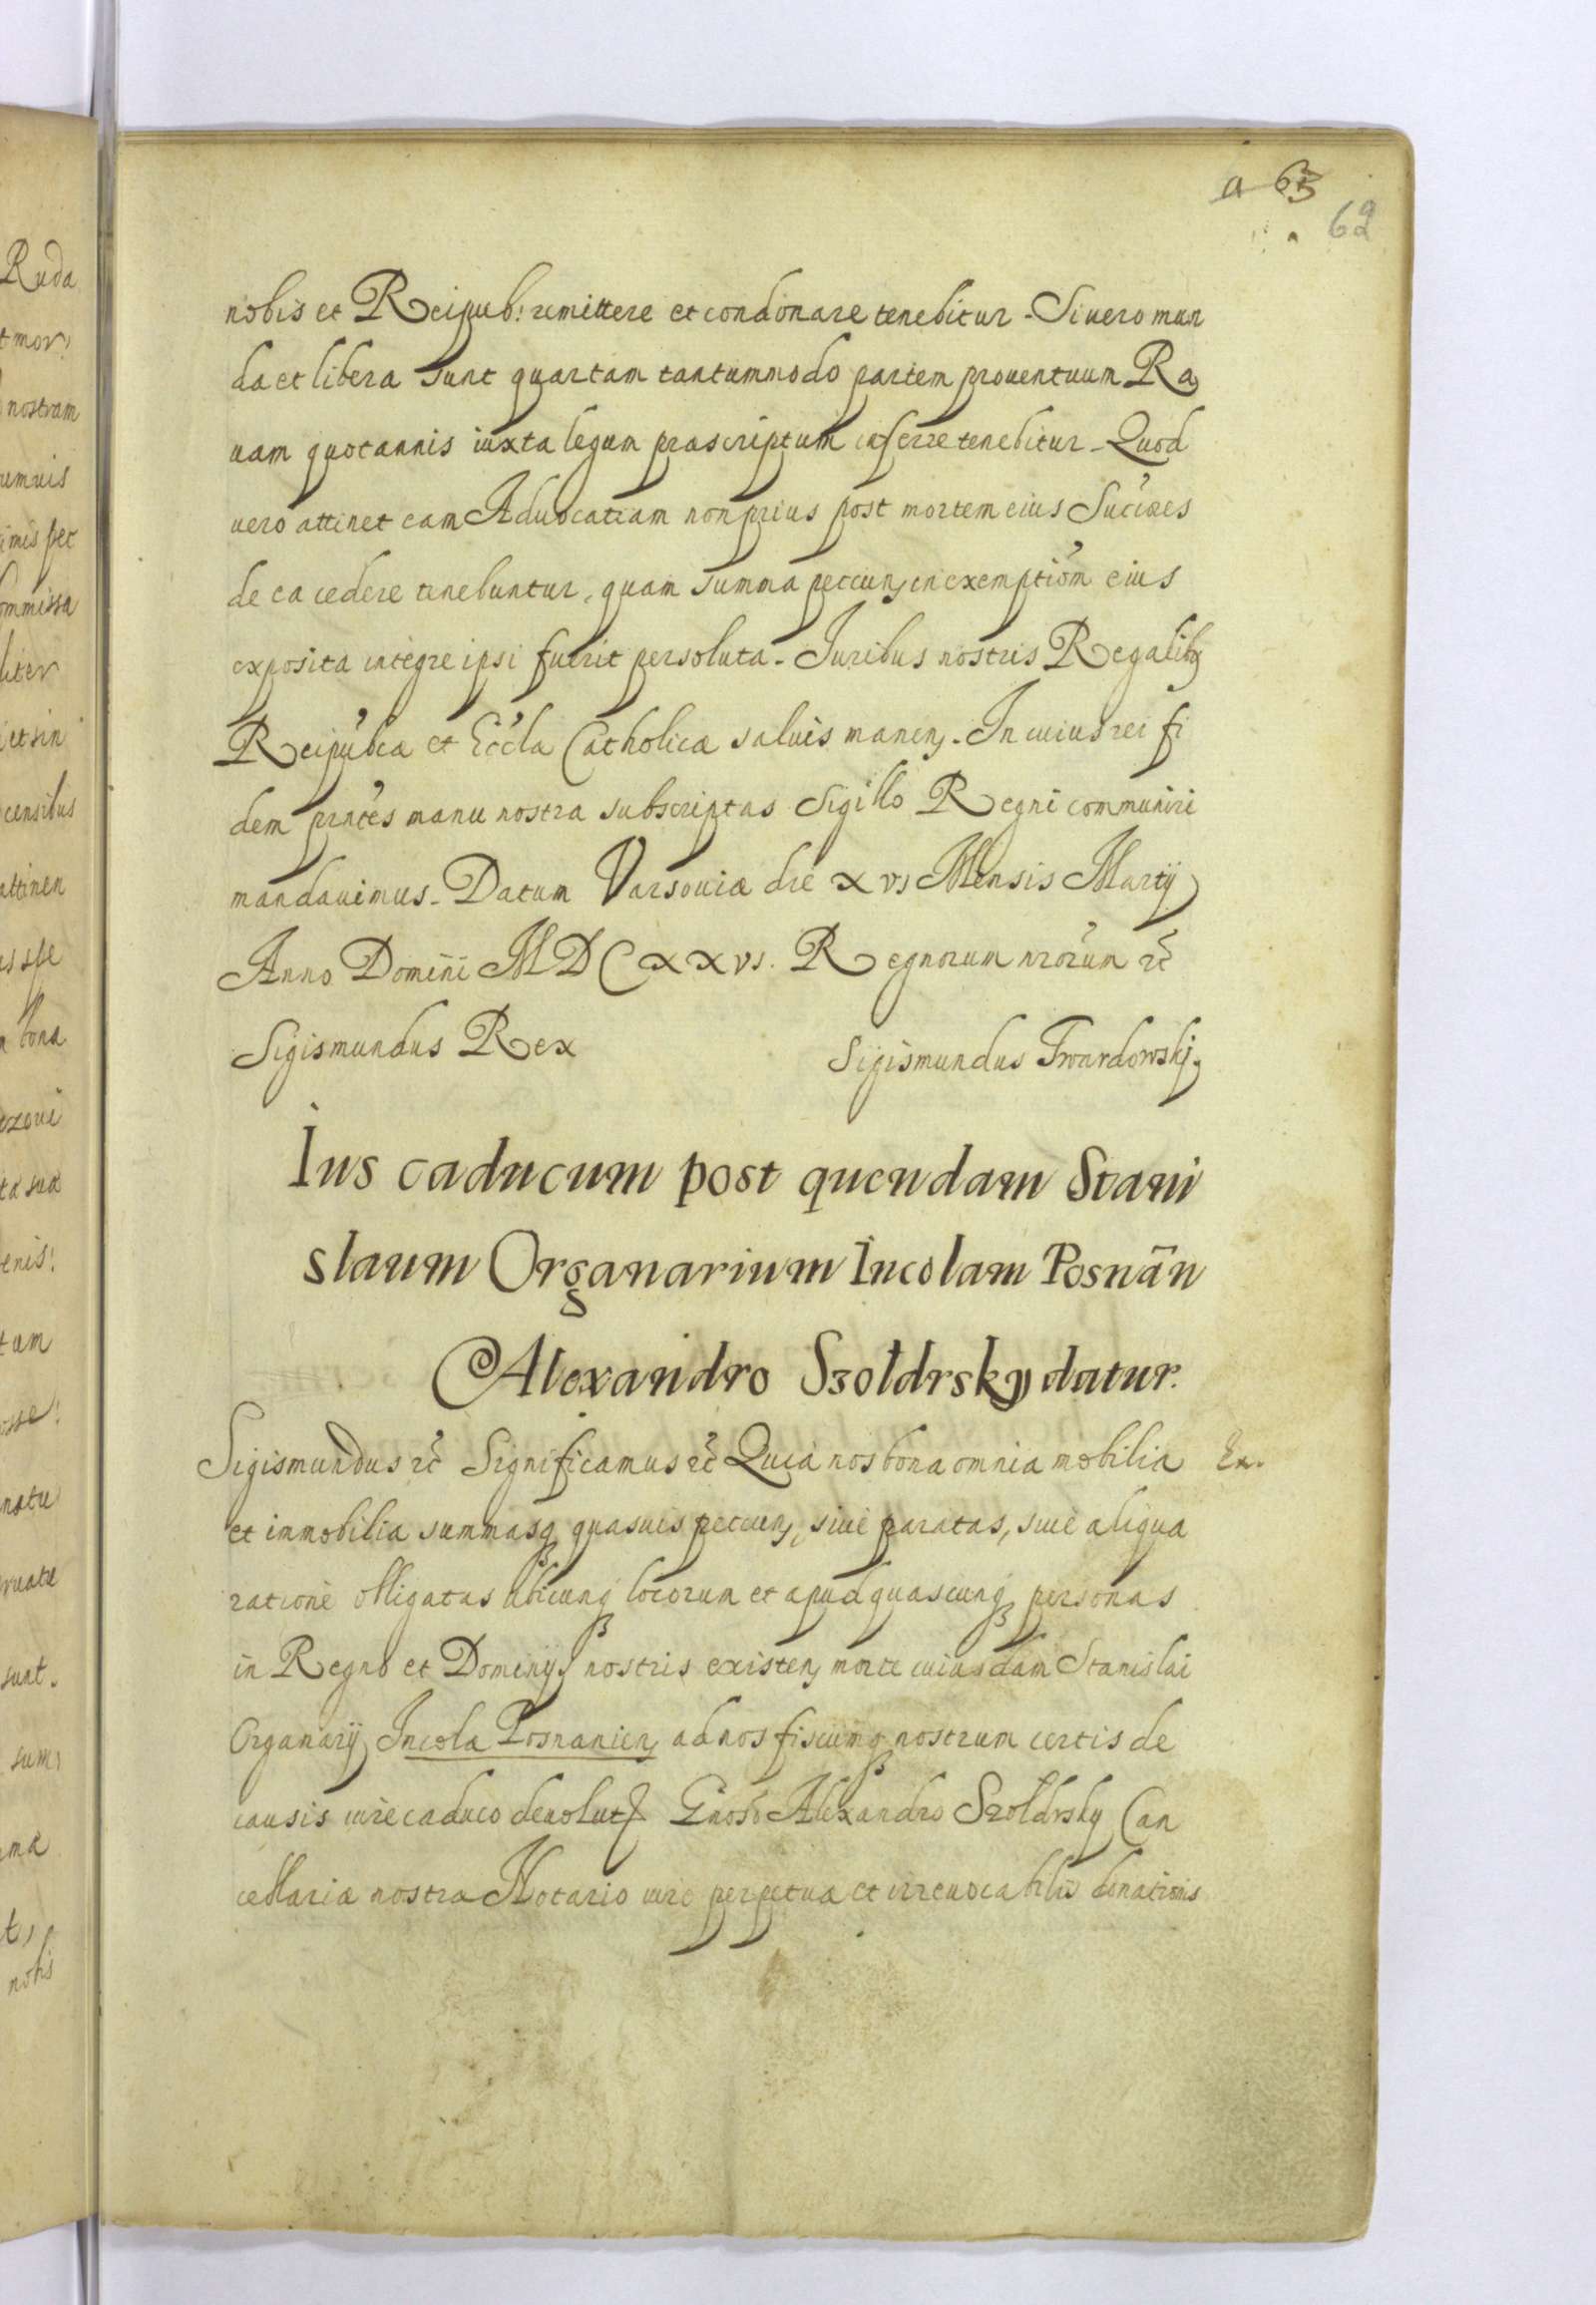 a 63
62
nobis et Reipub: remittere et condonare tenebitur. Si vero mun
da et libera sunt quartam tantummodo partem proventuum Ra
uam quotannis iuxta legum præscriptum inferre tenebitur. Quod
uero attinet eam Aduocatiam non prius post mortem eius Suc̃ores
de ea cedere tenebuntur, quam summa peccun, in exemptiom̃ eius
exposita integre ipsi fuerit persoluta. Iuribus nostris Regalibq
Reipub̃cæ et Eccl̃æ Catholicæ saluis manen,. In cuius rei fi
dem prñtes manu nostra subscriptas Sigillo Regni communiri
mandauimus. Datum Varsouiæ die xvj Mensis Martij
Anno Domini MDCxxvj. Regnorum nrõrum etc̃
Sigismundus Rex
Sigismundus Twardowskj,
Ius caducum post quendam Stani
slaum Organarium Incolam Posnãn
Alexandro Szołdrsky datur.
Sigismundus etc̃ Significamus etc̃ Quia nos bona omnia mobilia Ex.
et immobilia summasq quasuis peccun, siue paratas, siue aliqua
ratione obligatas ubicunq locorum et apud quascunq personas
in Regno et Dominijs nostris existen, morte cuiusdam Stanislai
Organarij Incolæ Posnanien, ad nos fiscumq nostrum certis de
causis iure caduco deuolut, Gnoso Alexandro Szołdrsky Can
cellariæ nostræ Notario iure perpetuæ et irreuocabilis donationis
Ruda
t mor,
nostram
umuis
imis per
ommissa
liter
et sin
censibus
attinen
bona
ta sua
enis!
tum
sunt.
sum,
ma
nobis